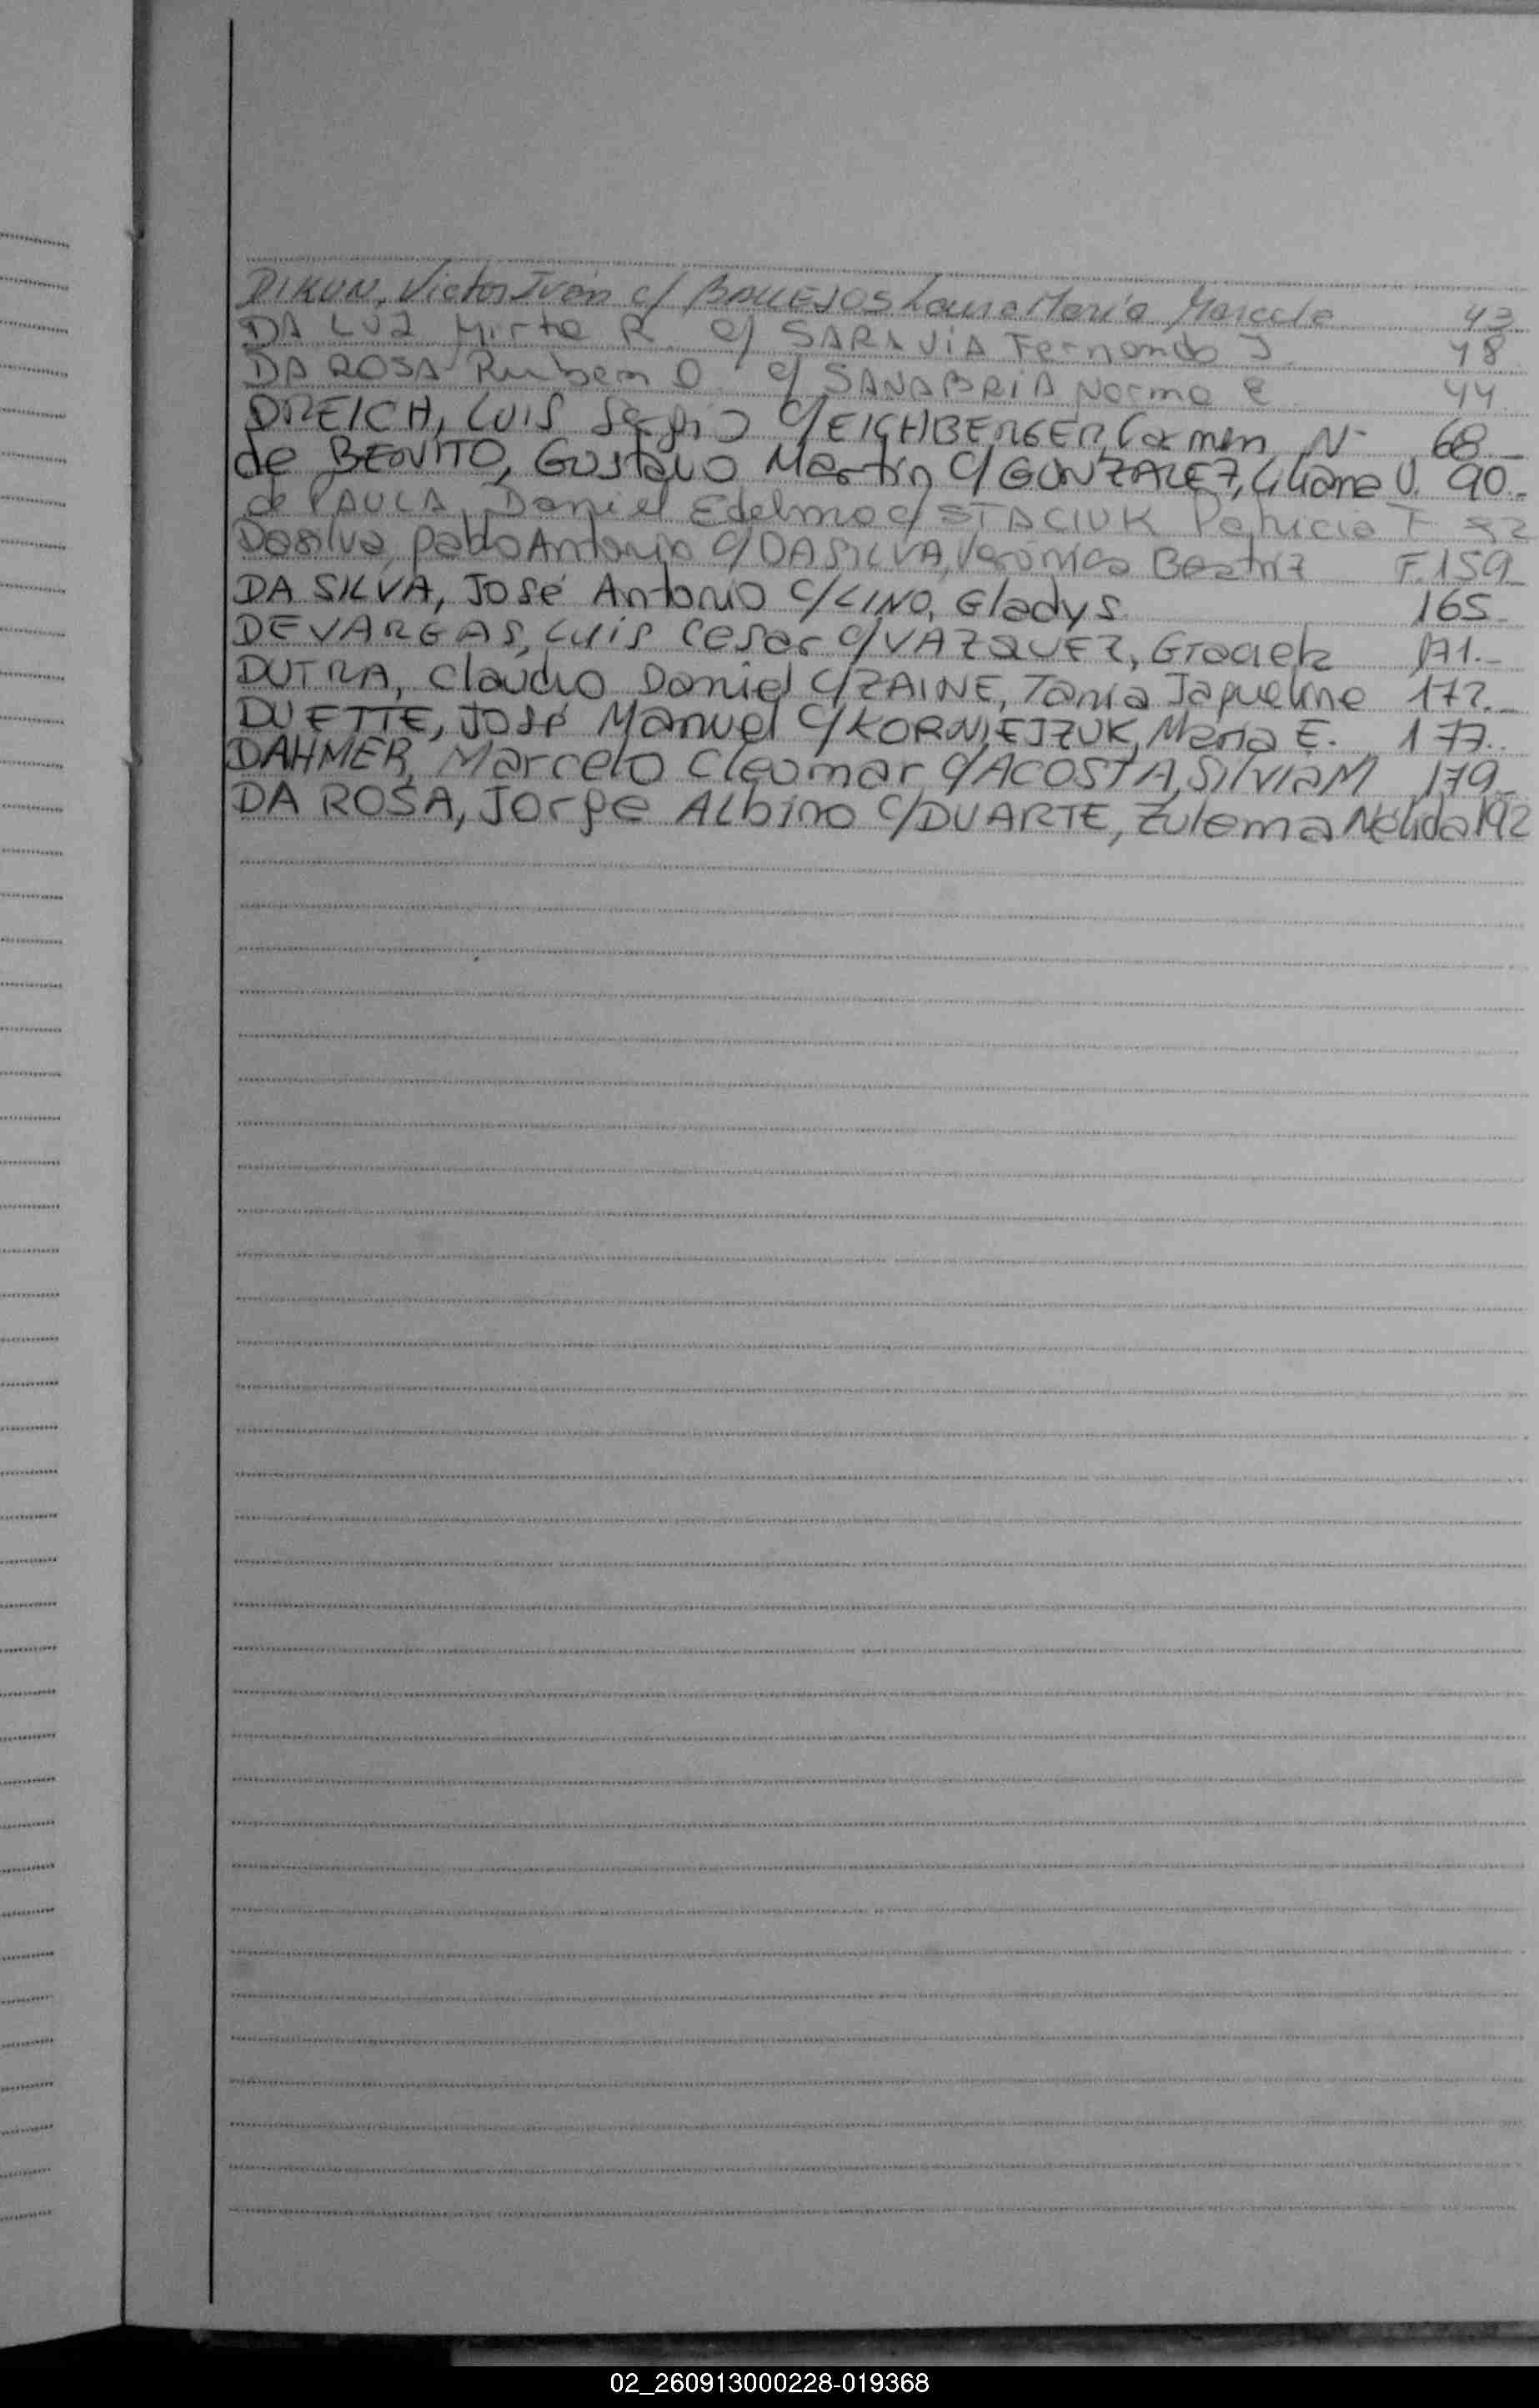 DIKUN, Victor Iván c/ BALLEJOS Laura María Marcela 43
DA LUZ Mirta R. c/ SARAVIA Fernando J. 48
DA ROSA Ruben O. c/ SANABRIA Norma E. 44
DREICH, LUIS Sergio c/EICHBERGER, Carmen N. 68
de BENITO, Gustavo Martín c/ GONZALEZ, Liliana V. 90.-
de PAULA, Daniel Edelmo c/ STACIUK Patricia F.
Dasilva, pablo Antonio c/DASILVA, Verónica Beatriz F.159
DA SILVA, José Antonio c/LINO, Gladys 165.
DEVARGAS, Luis Cesar c/VAZQUEZ, Graciela 171.-
DUTRA, Claudio Daniel c/ZAINE, Tania Jaqueline 172.-
DUETTE, José Manuel c/KORNIEJZUK, María E. 177.
DAHMER, Marcelo Cleomar c/ACOSTA, SILVIA M 179
DA ROSA, Jorge Albino c/DUARTE, Zulema Nélida 192
02_260913000228-019368